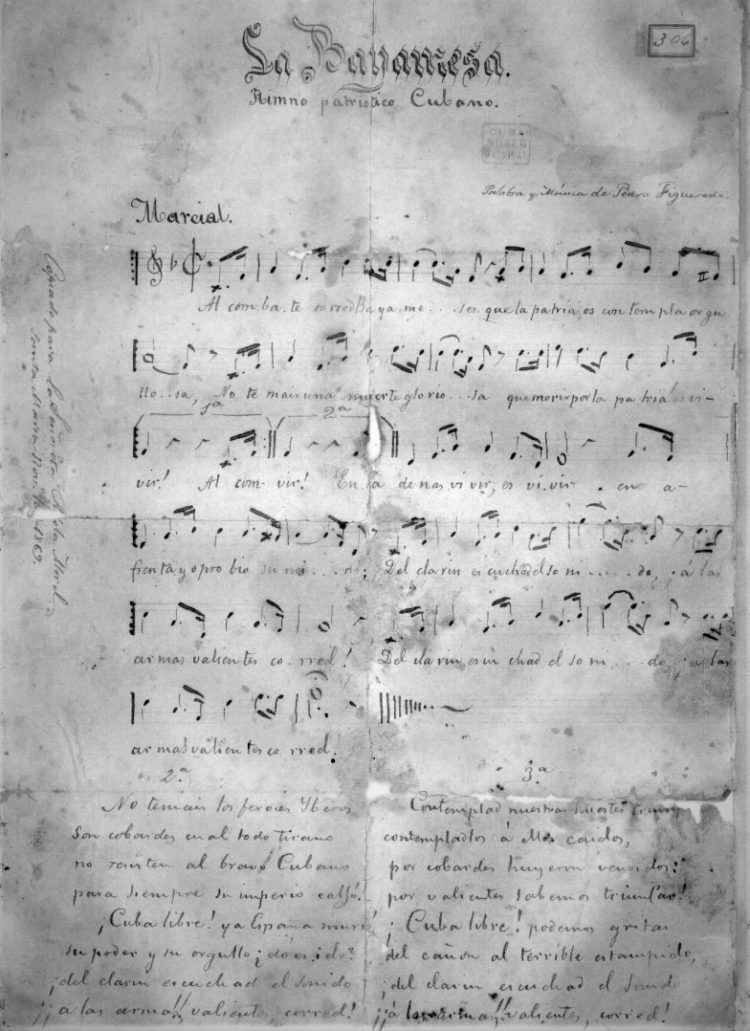 La Bayamesa.
306
Himno patriótico Cubano.
CUBA
MUSEO
Palabra y Música de Pedro Figueredo.
Marcial.
Al com.ba.te corred Bayame...ses que la patria os contempla orgu
llo..sa, No te mais una muerte glorio...sa que morir por la patria es vi-
1ª 2ª
vir! Al com- vir! En ca denas vivir, es vi.vir. en a-
frenta y opro bio su mi....do; Del clarin escuchad el so ni.....do, ; á las
armas valientes co.rred! Del clarin escuchad el so ni....do ; a las
armas valientes co rred!
Copiado para la Señorita Morel
Santa Maria Nov. 1869.
2ª
No temais los feroces Yberos
Son cobardes cual todo tirano
no resisten al bravo Cubano
para siempre su imperio cayó!
¡Cuba libre! ya España murió
su poder y su orgullo ¿do es ido?
¡del clarin escuchad el sonido
¡¡a las armas!! valientes, corred!
3ª
Contemplad nuestras huestes
contempladlos á caidos,
por cobardes huyeron vencidos:
por valientes sabemos triunfar!
¡Cuba libre! podemos gritar
del cañon al terrible estampido,
¡del clarin escuchad el sonido
¡¡á las armas!! valientes, corred!